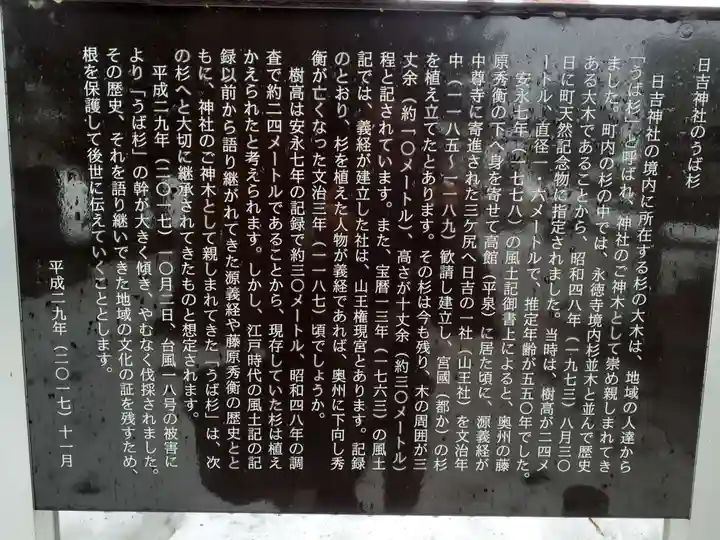 日吉神社のうば杉
日吉神社の境内に所在する杉の大木は、地域の人達から
「うば杉」と呼ばれ、神社のご神木として崇め親しまれてき
ました。町内の杉の中では、永徳寺境内杉並木と並んで歴史
ある大木であることから、昭和四八年（一九七三）八月三〇
日に町天然記念物に指定されました。当時は、樹高が二四メ
ートル、直径一・六メートルで、推定年齢が五五〇年でした。
安永七年（一七七八）の風土記御書上によると、奥州の藤
原秀衡の下へ身を寄せて高館（平泉）に居た頃に、源義経が
中尊寺に寄進された三ケ尻へ日吉の一社（山王社）を文治年
中（一一八五～一二八九）歓請し建立し、宮國（都か）の杉
を植え立てたとあります。その杉は今も残り、木の周囲が三
丈余（約一〇メートル）、高さが十丈余（約三〇メートル）
程と記されています。また、宝暦一三年（一七六三）の風土
記では、義経が建立した社は、山王権現宮とあります。記録
のとおり、杉を植えた人物が義経であれば、奥州に下向し秀
衡が亡くなった文治三年（一一八七）頃でしょうか。
樹高は安永七年の記録で約三〇メートル、昭和四八年の調
査で約二四メートルであることから、現存していた杉は植え
かえられたと考えられます。しかし、江戸時代の風土記の記
録以前から語り継がれてきた源義経や藤原秀衡の歴史とと
もに、神社のご神木として親しまれてきた「うば杉」は、次
の杉へと大切に継承されてきたものと想定されます。
平成二九年（二〇一七）一〇月二日、台風一八号の被害に
より「うば杉」の幹が大きく傾き、やむなく伐採されました。
その歴史、それを語り継いできた地域の文化の証を残すため、
根を保護して後世に伝えていくこととします。
平成二九年（二〇一七）十一月